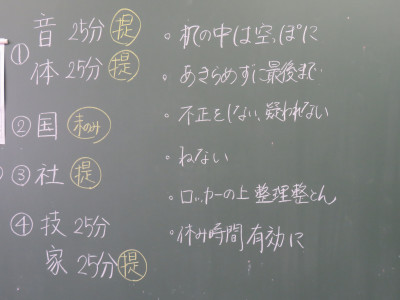 ① 音 25分 提
体 25分 提
② 国 赤のみ
③ 社 提
④ 技 25分
家 25分 提
。机の中は空っぽに
。あきらめずに最後まで
。不正をしない、疑われない
。ねない
。ロッカーの上 整理整とん
。休み時間 有効に